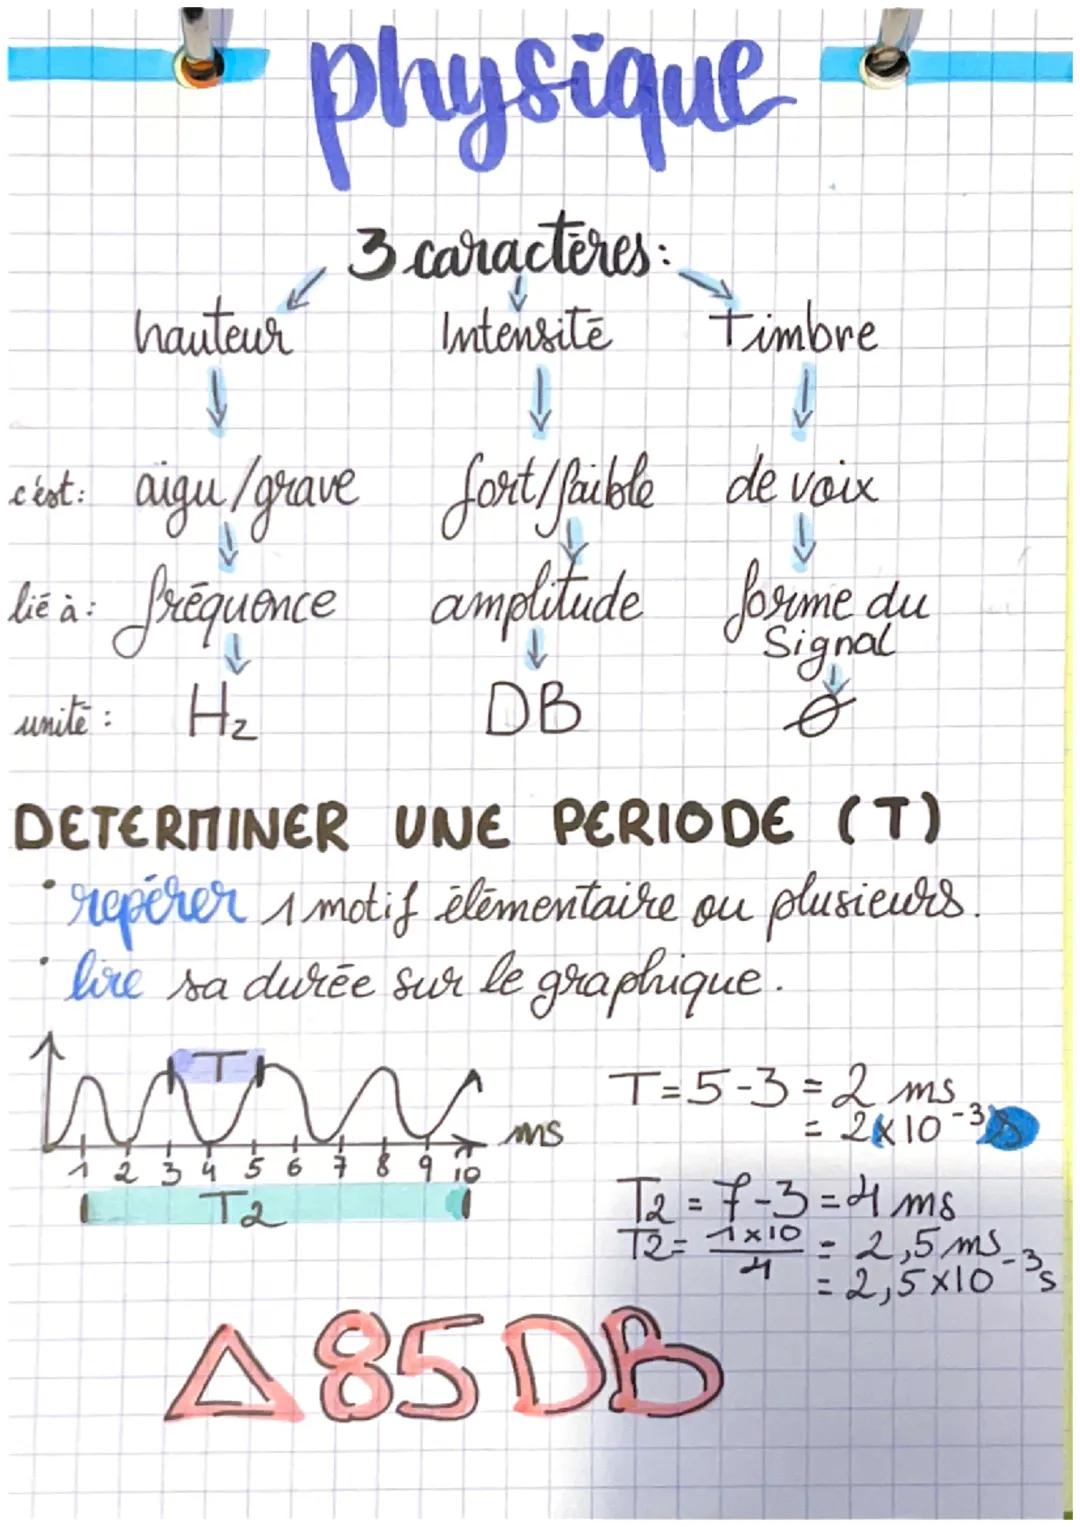 physique
3 caractères:
hauteur Intensité Timbre
c'est: aigu/grave fort/faible de voix
lié à: fréquence amplitude forme du
Signal
unité: Hz DB Ø
DETERMINER UNE PERIODE (T)
• repérer 1 motif élémentaire ou plusieurs.
• lire sa durée sur le graphique.
T
ms
1 2 3 4 5 6 7 8 9 10
T2
T=5-3=2 ms
= 2x10⁻³s
T2 = 7-3=4 ms
T2= 1x10/4 = 2,5 ms
= 2,5x10⁻³s
Δ 85 DB